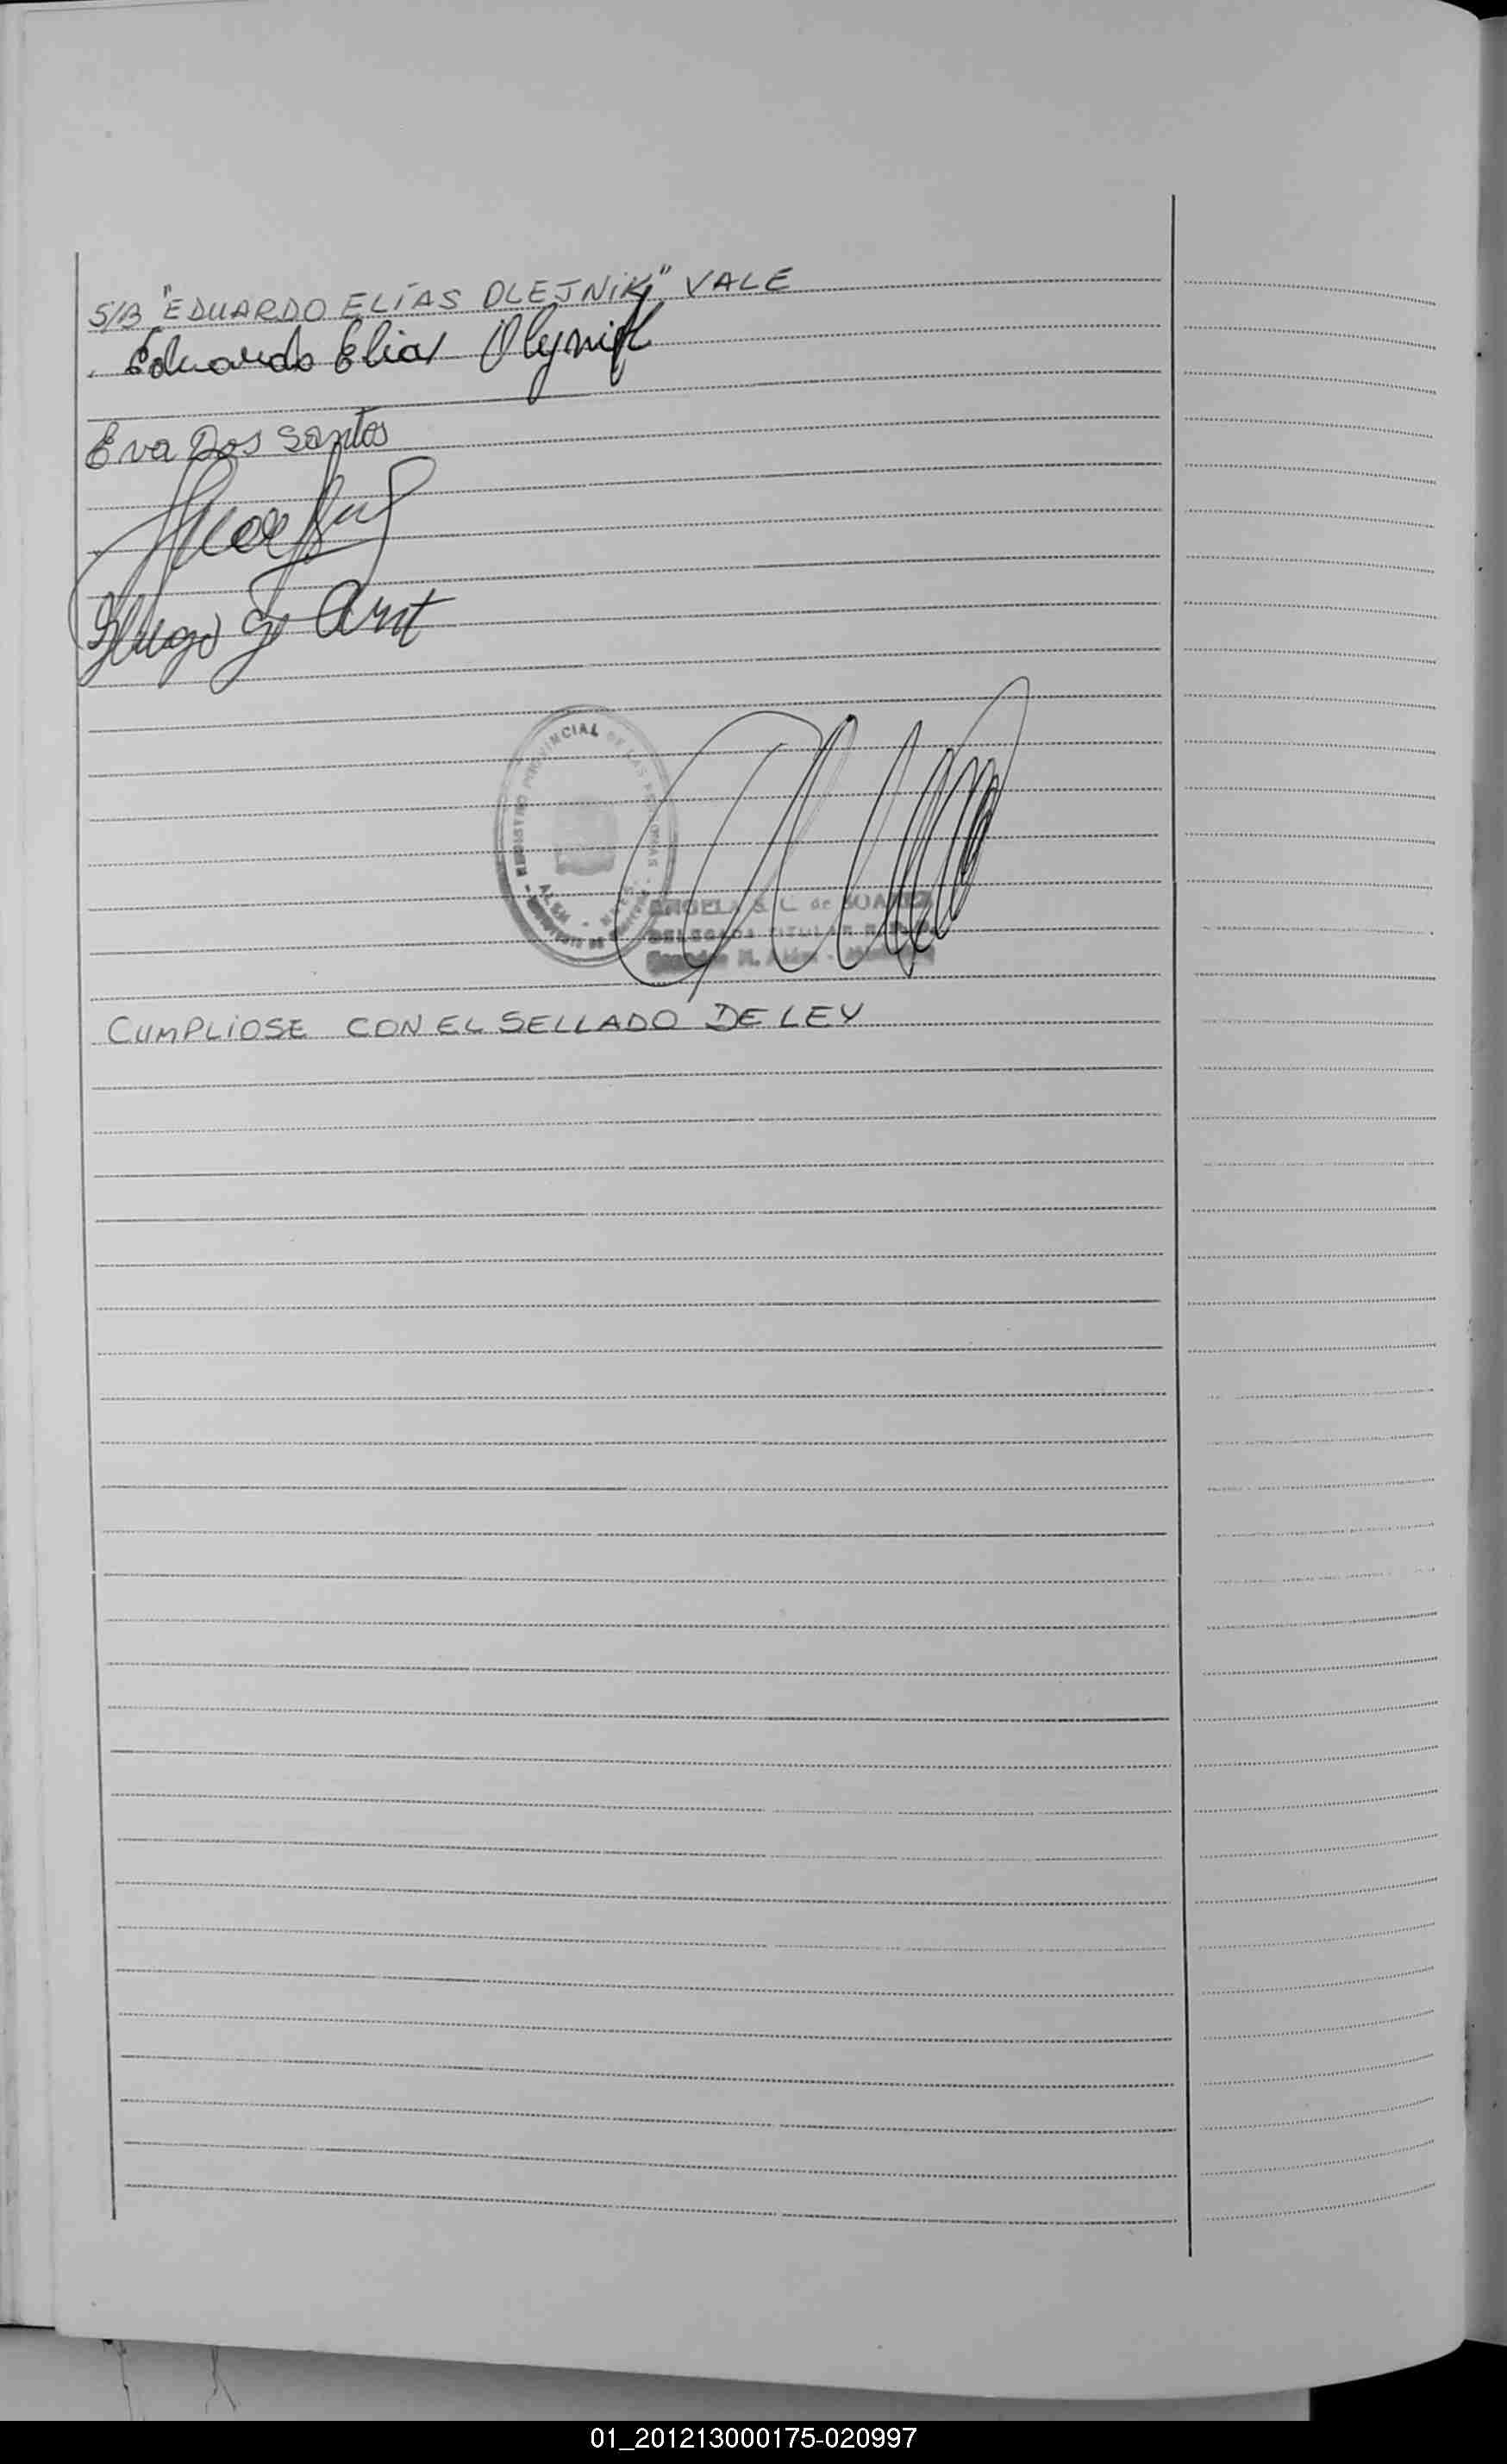 S/B "EDUARDO ELÍAS OLEJNIK" VALE
Eduardo Elias Olejnik
Eva Dos Santos
Hugo G. Arnt
REGISTRO PROVINCIAL DE LAS PERSONAS
ANGELA S. C. de SOAREZ
DELEGADA TITULAR
CUMPLIOSE CON EL SELLADO DE LEY
01_201213000175-020997